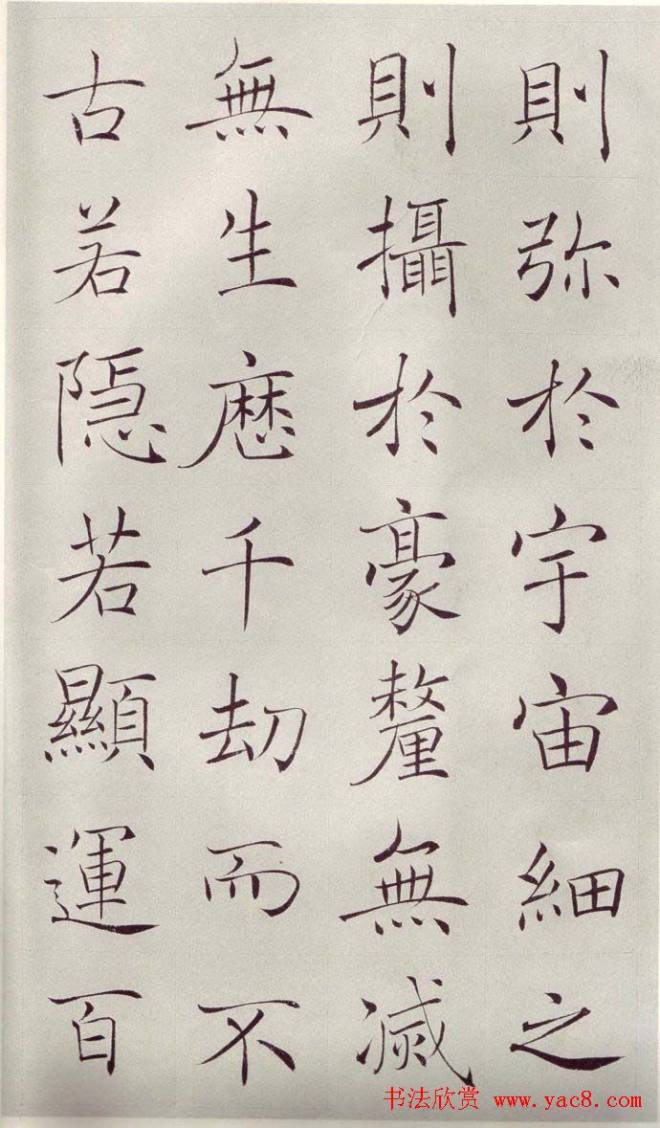 則弥於宇宙細之
則攝於豪釐無滅
無生歷千劫而不
古若隠若顯運百
书法欣赏 www.yac8.com